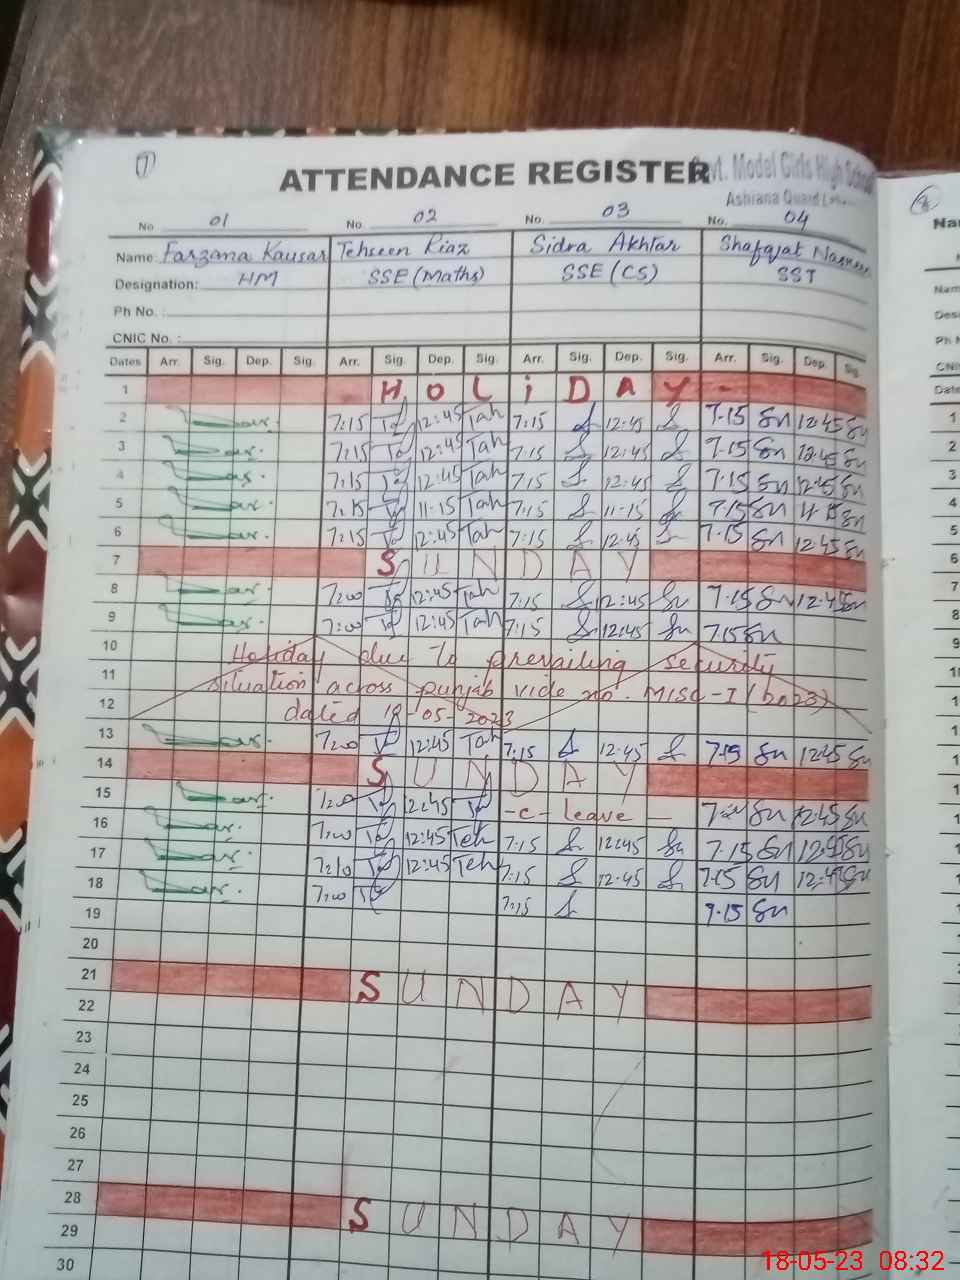 1
ATTENDANCE REGISTER
Govt. Model Girls High School
Ashiana Quaid
No. 01 No. 02 No. 03 No. 04
Name: Farzana Kausar Tehseen Riaz Sidra Akhtar Shafaqat Nasreen
Designation: HM SSE (Maths) SSE (CS) SST
Ph No. :
CNIC No. :
Dates Arr. Sig. Dep. Sig. Arr. Sig. Dep. Sig. Arr. Sig. Dep. Sig. Arr. Sig. Dep. Sig.
1 HOLiDAY -
2 7:15 12:45 Tah 7:15 12:45 7.15 Sn 12.45 Sn
3 7:15 12:45 Tah 7:15 12:45 7.15 Sn 12.45 Sn
4 7:15 12:45 Tah 7:15 12:45 7.15 Sn 12.45 Sn
5 7:15 11-15 Tah 7:15 11-15 7.15 Sn 11.15 Sn
6 7:15 12:45 Tah 7:15 12:45 7.15 Sn 12.45 Sn
7 SUNDAY
8 7:00 12:45 Tah 7:15 12:45 7.15 Sn 12.45 Sn
9 7:00 12:45 Tah 7:15 12:45 7.15 Sn
10 Holiday due to prevailing security
11 situation across punjab vide no. MISC-I (2023)
12 dated 18-05-2023
13 7:00 12:45 Tah 7:15 12:45 7.15 Sn 12.45 Sn
14 SUNDAY
15 7:00 12:45 -c- leave - Sn 12.45 Sn
16 7:00 12:45 Teh 7:15 12:45 7.15 Sn Sn
17 7:10 12:45 Teh 7:15 12:45 7.15 Sn Sn
18 7:00 7:15 7.15 Sn
19
20
21 SUNDAY
22
23
24
25
26
27
28 SUNDAY
29
30
18-05-23 08:32